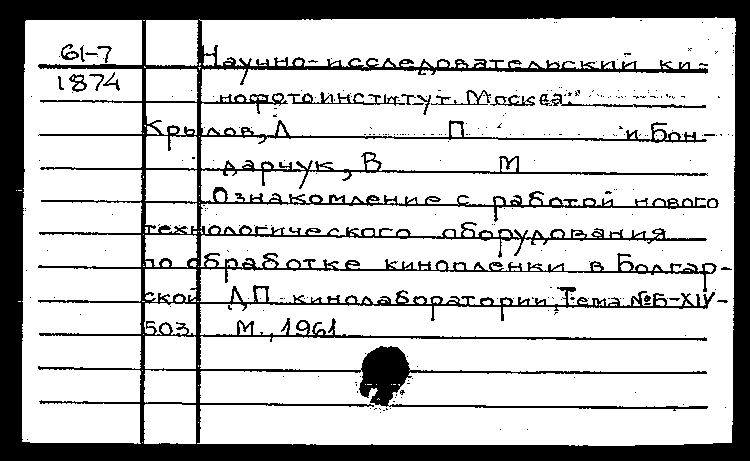 61-7
1874
Научно-исследовательский ки-
нофотоинститут. Москва.
Крылов, Л П и Бон-
дарчук, В М
Ознакомление с работой нового
технологического оборудования
по обработке кинопленки в Болгар-
ской ДП кинолаборатории, Тема №Б-XIV-
503. М., 1961